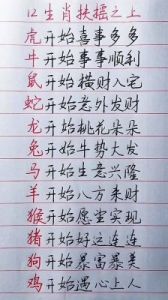 12生肖扶摇之上
虎开始喜事多多
牛开始事事顺利
鼠开始横财入宅
蛇开始意外发财
龙开始桃花朵朵
兔开始牛势大发
马开始生意兴隆
羊开始八方来财
猴开始愿望实现
猪开始好运连连
狗开始暴富暴美
鸡开始遇心上人